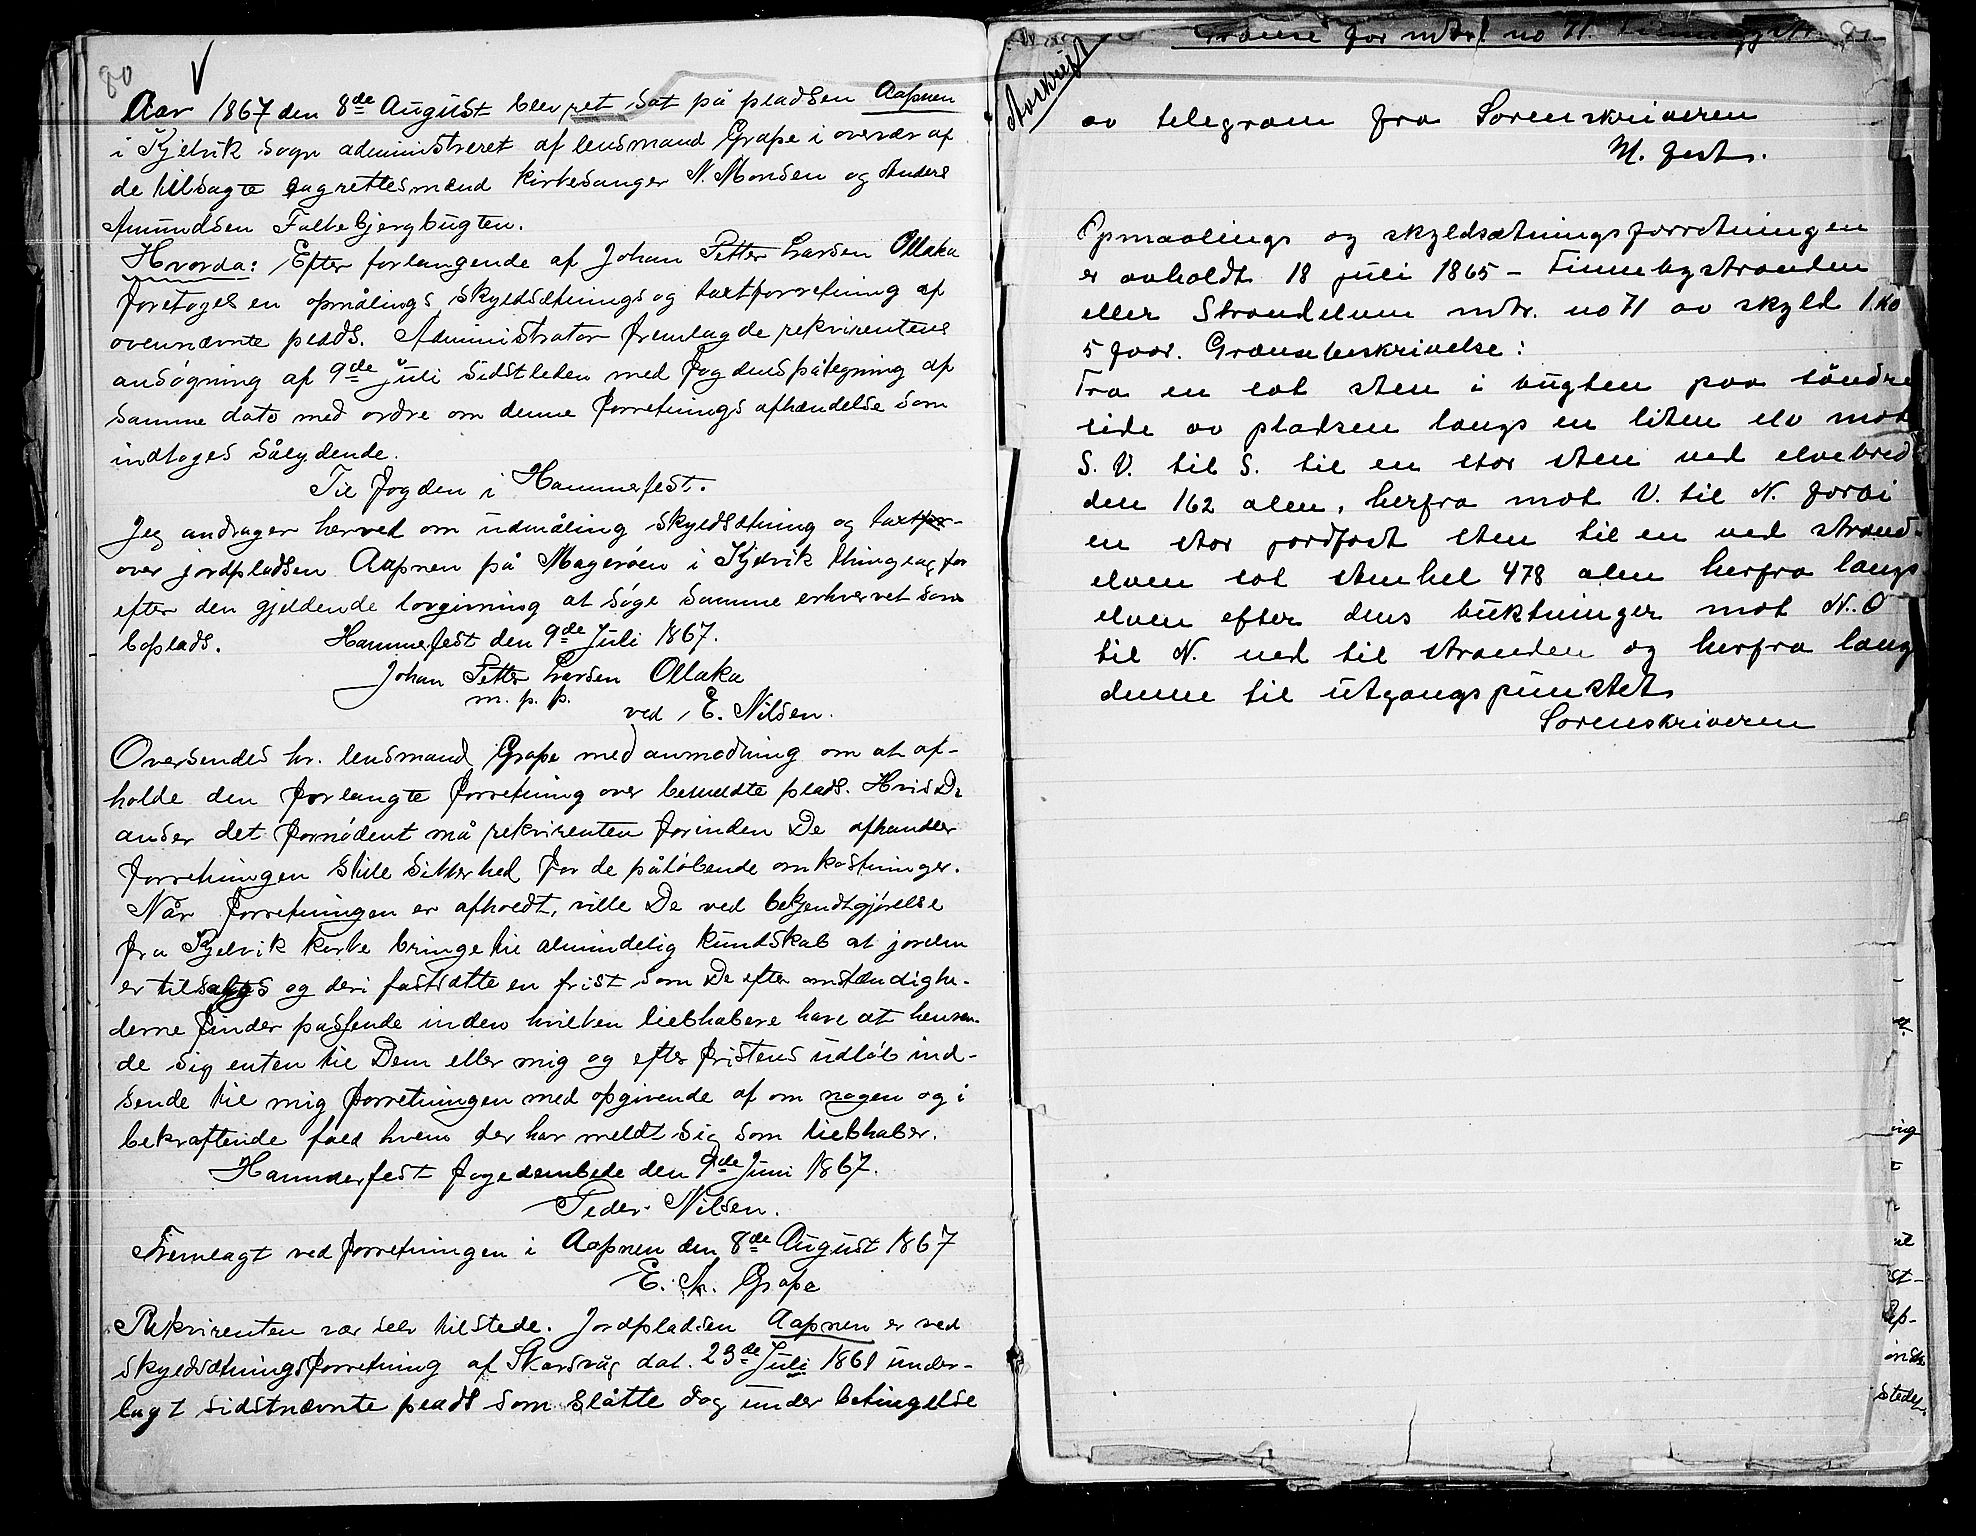 80
Aar 1867 den 8de August blev ret sat på pladsen Aapnen
i Kjelvik sogn administreret af lensmand Grape i overvær af
de tilsagte lagrettesmænd kirkesanger N. Monsen og Anders
Amundsen Falkebjergbugten.
Hvorda: Efter forlangende af Johan Petter Larsen Ollaka
foretoges en opmålings skyldsætnings og taxtforretning af
ovennævnte plads. Administrator fremlagde rekvirentens
ansøgning af 9de juli sidstleden med fogdens påtegning af
samme dato med ordre om denne forretnings afhændelse som
indtoges sålydende.
Til fogden i Hammerfest.
Jeg andrager herved om udmåling skyldsætning og taxtfor-
over jordpladsen Aapnen på Magerøen i Kjelvik thinglag for
efter den gjeldende lovgivning at søge samme erhvervet som
boplads. Hammerfest den 9de Juli 1867.
Johan Petter Larsen Ollaka
m. p. p.
ved E. Nilsen.
Oversendes hr. lensmand Grape med anmodning om at af-
holde den forlangte forretning over bemeldte plads. Hvis De
anser det fornødent må rekvirenten forinden De afhandler
forretningen stille sikkerhed for de påløbende omkostninger.
Når forretningen er afholdt, ville De ved bekjendtgjørelse
fra Kjelvik kirke bringe til almindelig kundskab at jorden
er tilsalgs og deri fastsætte en frist som De efter omstændighe-
derne finder passende inden hvilken liebhabere have at henven-
de sig enten til Dem eller mig og efter fristens udløb ind-
sende til mig forretningen med opgivende af om nogen og i
bekræftende fald hvem der har meldt sig som liebhaber.
Hammerfest fogedembede den 9de Juni 1867.
Peder Nilsen.
Fremlagt ved forretningen i Aapnen den 8de August 1867
E. A. Grape
Rekvirenten var selv tilstede. Jordpladsen Aapnen er ved
skyldsætningsforretning af Skarsvåg dat. 23de Juli 1861 under-
lagt sidstnævnte plads som slåtte dog under betingelse
Grænse for mtr. no 71.
Avskrift
av telegram fra Sorenskriveren
H. fest.
Opmaalings og skyldsætningsforretningen
er avholdt 18 juli 1865 – Finnebystranden
eller Strandelven mtr. no 71 av skyld 1. ko
5 faar. Grænsebeskrivelse:
Fra en sat sten i bugten paa søndre
side av pladsen langs en liten elv mot
S. V. til S. til en stor sten ved elvebred
den 162 alen, herfra mot V. til N. forbi
en stor jordfast sten til en ved strand-
elven sat stenhel 478 alen herfra langs
elven efter dens buktninger mot N. O
til N. ned til stranden og herfra lang
denne til utgangspunktet.
Sorenskriveren